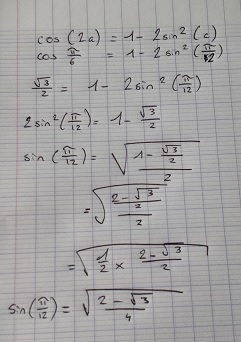 cos (2a) = 1 - 2sin² (a)
cos π/6 = 1 - 2 sin² (π/12)
√3/2 = 1 - 2sin² (π/12)
2sin² (π/12) = 1 - √3/2
sin (π/12) = √((1 - √3/2)/2)
= √(((2 - √3)/2)/2)
= √(1/2 × (2 - √3)/2)
sin (π/12) = √((2 - √3)/4)